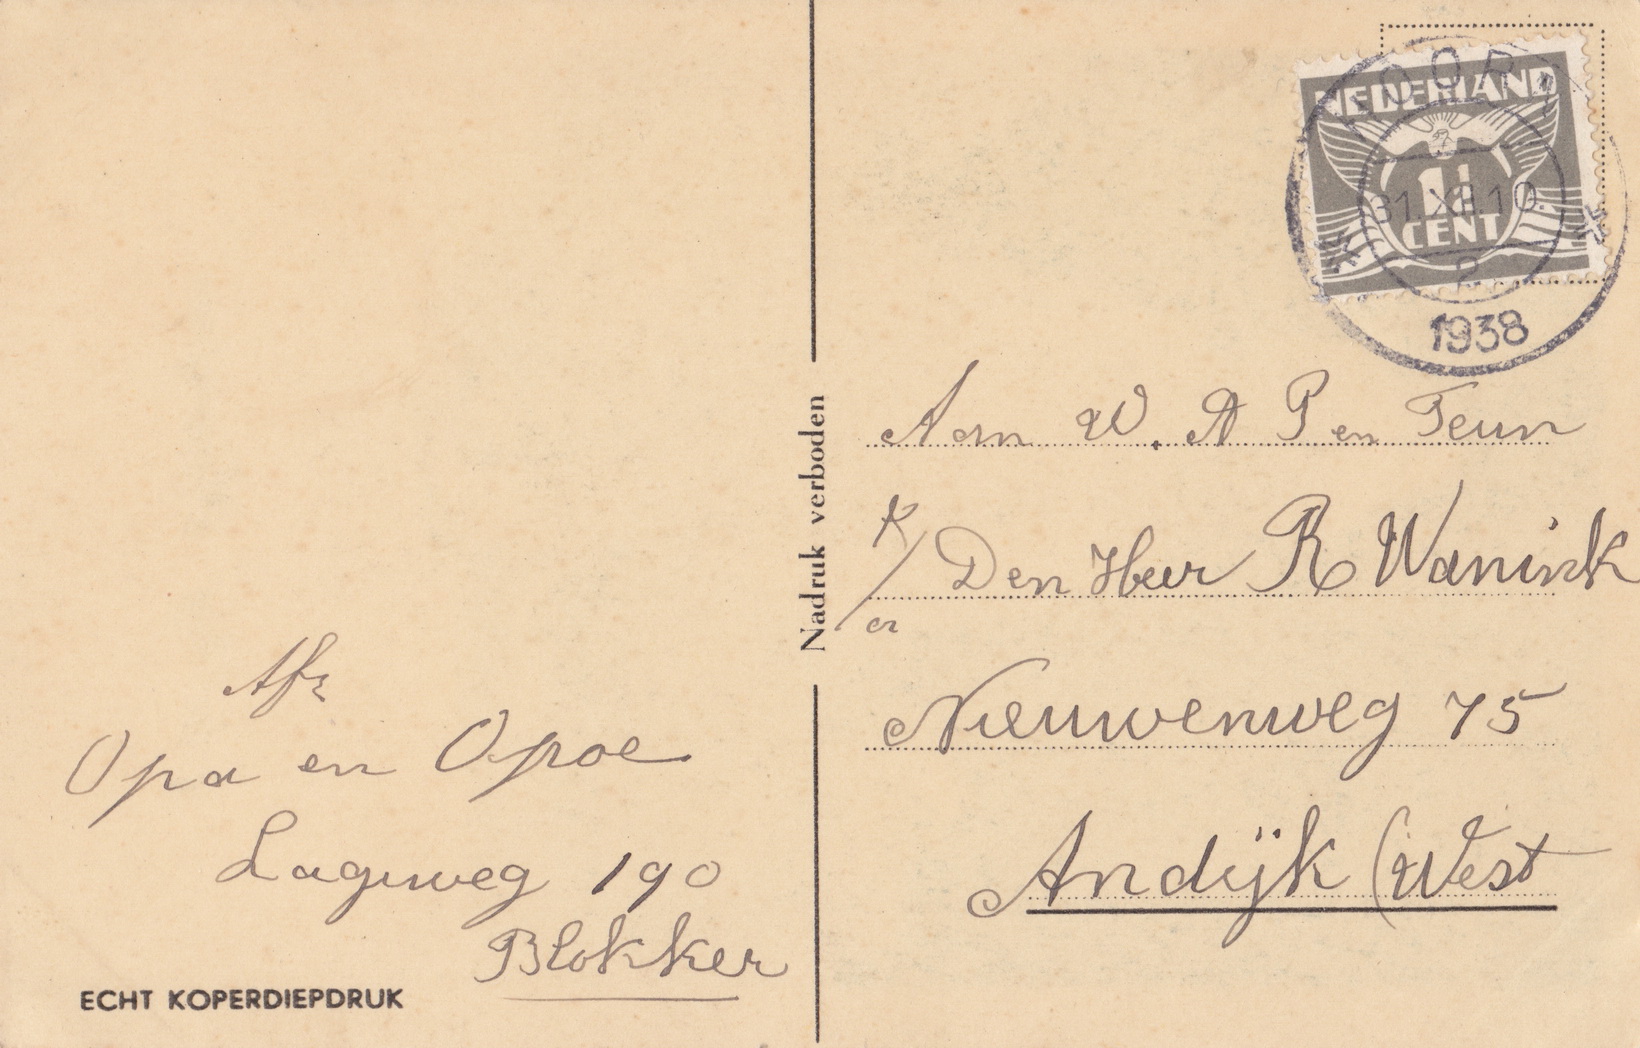 Afz
Opa en Opoe
Lageweg 190
Blokker
ECHT KOPERDIEPDRUK
Nadruk verboden
NEDERLAND
1½
CENT
HOORN
31.XII.10.
1938
Aan W. A P en Teun
p/ Den Heer R Wanink
Nieuwenweg 75
Andijk (West